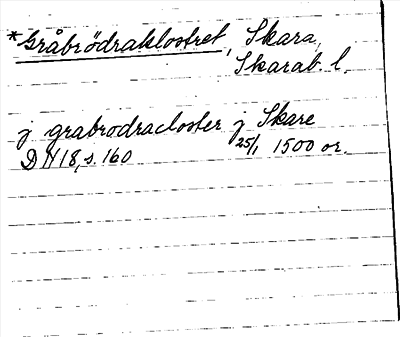 *Gråbrödraklostret, Skara,
Skarab. l.
j grabrodracloster j Skare
DN 18, s. 160 25/1 1500 or.